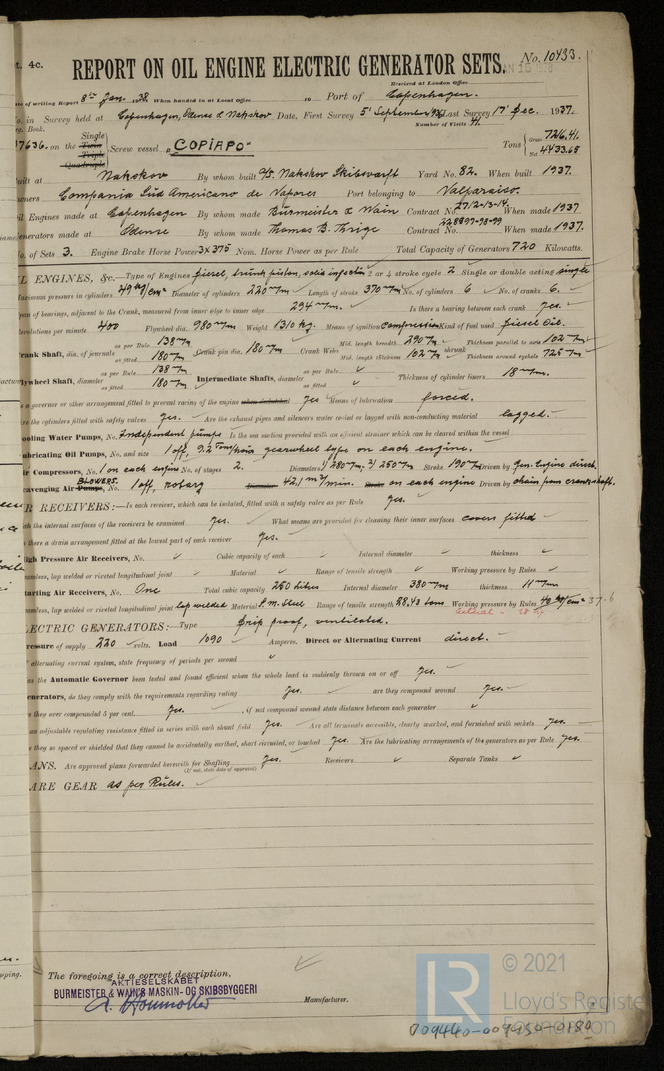 t. 4c.
REPORT ON OIL ENGINE ELECTRIC GENERATOR SETS.
No. 10433.
Received at London Office
ate of writing Report 8th Jan. 1938 When handed in at Local Office 19 Port of Copenhagen.
o. in Survey held at Copenhagen, Odense & Nakskov Date, First Survey 5th September Last Survey 17th Dec. 1937.
eg. Book. Number of Visits 41.
7636. on the Single Twin Triple Quadruple Screw vessel "COPIAPO" Tons Gross 7216.41. Net 4433.65
uilt at Nakskov By whom built A/S. Nakskov Skibsværft Yard No. 82. When built 1937.
wners Compania Sud Americano de Vapores Port belonging to Valparaiso.
Oil Engines made at Copenhagen By whom made Burmeister & Wain Contract No. 2712-13-14. When made 1937
enerators made at Odense By whom made Thomas B. Thrige Contract No. 228897-98-99 When made 1937.
o. of Sets 3. Engine Brake Horse Power 3x375 Nom. Horse Power as per Rule Total Capacity of Generators 720 Kilowatts.
IL ENGINES, &c.—Type of Engines Diesel, trunk piston, solid injection 2 or 4 stroke cycle 2 Single or double acting single
aximum pressure in cylinders 49 kg/cm² Diameter of cylinders 220 m/m Length of stroke 370 m/m No. of cylinders 6 No. of cranks 6.
pan of bearings, adjacent to the Crank, measured from inner edge to inner edge 294 m/m. Is there a bearing between each crank yes.
evolutions per minute 400 Flywheel dia. 980 m/m Weight 1310 kg. Means of ignition compression Kind of fuel used Diesel Oil.
rank Shaft, dia. of journals as per Rule 138 m/m as fitted 180 m/m Crank pin dia. 180 m/m Crank Webs Mid. length breadth 290 m/m Mid. length thickness 102 m/m shrunk Thickness parallel to axis 102 m/m Thickness around eyehole 72.5 m/m
lywheel Shaft, diameter as per Rule 138 m/m as fitted 180 m/m Intermediate Shafts, diameter as per Rule ✓ as fitted ✓ Thickness of cylinder liners 18 m/m.
s a governor or other arrangement fitted to prevent racing of the engine when declutched yes Means of lubrication forced.
re the cylinders fitted with safety valves yes. Are the exhaust pipes and silencers water cooled or lagged with non-conducting material lagged.
ooling Water Pumps, No. Independent pumps Is the sea suction provided with an efficient strainer which can be cleared within the vessel
ubricating Oil Pumps, No. and size 1 off, 9.2 Tons/hour gearwheel type on each engine.
ir Compressors, No. 1 on each engine No. of stages 2. Diameters 1/ 280 m/m. 2/ 250 m/m Stroke 190 m/m Driven by Gen. Engine direct.
cavenging Air Pumps, BLOWERS. No. 1 off, rotary Diameter 42.1 m³/min. Stroke on each engine Driven by chain from crankshaft.
R RECEIVERS:—Is each receiver, which can be isolated, fitted with a safety valve as per Rule yes.
an the internal surfaces of the receivers be examined yes. What means are provided for cleaning their inner surfaces covers fitted
s there a drain arrangement fitted at the lowest part of each receiver yes.
igh Pressure Air Receivers, No. ✓ Cubic capacity of each ✓ Internal diameter ✓ thickness ✓
eamless, lap welded or riveted longitudinal joint ✓ Material ✓ Range of tensile strength ✓ Working pressure by Rules ✓
tarting Air Receivers, No. One Total cubic capacity 250 litres Internal diameter 380 m/m thickness 11 m/m
eamless, lap welded or riveted longitudinal joint lap welded Material S.M. Steel Range of tensile strength 28.43 tons Working pressure by Rules 49 kg/cm² 37.6
Actual
LECTRIC GENERATORS:—Type Drip proof, ventilated.
ressure of supply 220 volts. Load 1090 Amperes. Direct or Alternating Current direct.
f alternating current system, state frequency of periods per second ✓
as the Automatic Governor been tested and found efficient when the whole load is suddenly thrown on or off yes.
enerators, do they comply with the requirements regarding rating yes. are they compound wound yes.
s they over compounded 5 per cent. yes. , if not compound wound state distance between each generator ✓
an adjustable regulating resistance fitted in series with each shunt field yes. Are all terminals accessible, clearly marked, and furnished with sockets yes.
e they so spaced or shielded that they cannot be accidentally earthed, short circuited, or touched yes. Are the lubricating arrangements of the generators as per Rule yes.
ANS. Are approved plans forwarded herewith for Shafting yes. Receivers ✓ Separate Tanks ✓
(If not, state date of approval)
ARE GEAR as per Rules.
The foregoing is a correct description,
AKTIESELSKABET
BURMEISTER & WAIN'S MASKIN- OG SKIBSBYGGERI
Manufacturer.
LR © 2021
Lloyd's Register
Foundation
009440-009450-0180